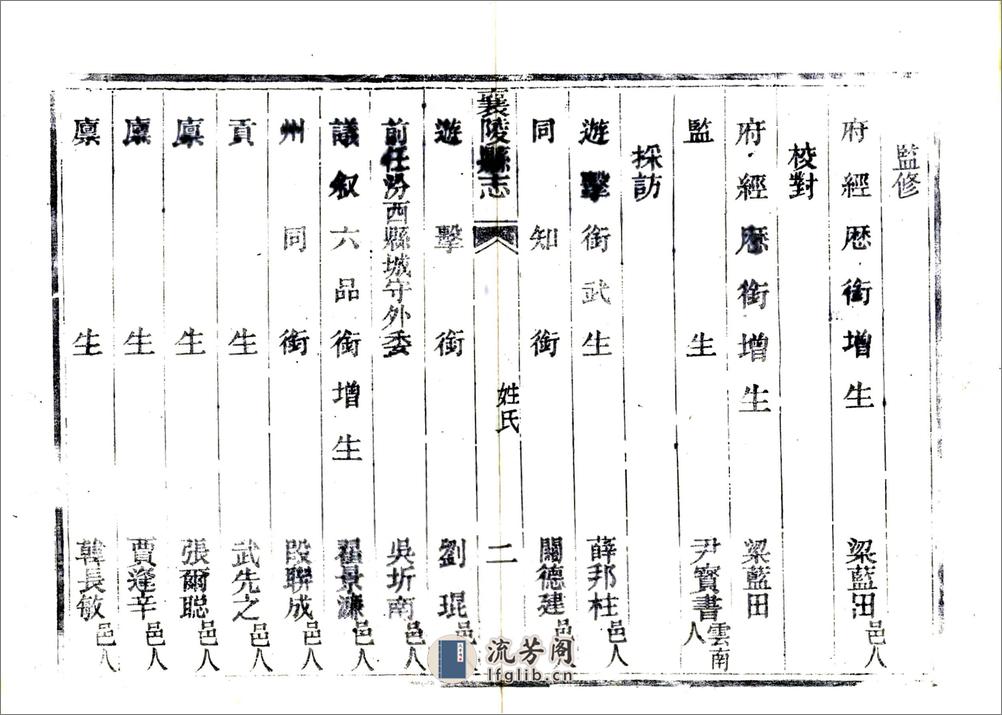 監修
府經歴銜增生 梁藍田邑人
校對
府經歴銜增生 梁藍田
監生 尹寶書雲南人
採訪
遊擊銜武生 薛邦柱邑人
同知銜 關德建邑
襄陵縣志 姓氏 二
遊擊銜 劉琨邑
前任汾西縣城守外委 吳圻南邑人
議叙六品銜增生 翟景濂邑人
州同銜 段聯成邑人
貢生 武先之邑人
廩生 張爾聡邑人
廩生 賈逢辛邑人
廩生 韓長敏邑人
流芳阁
lfglib.cn